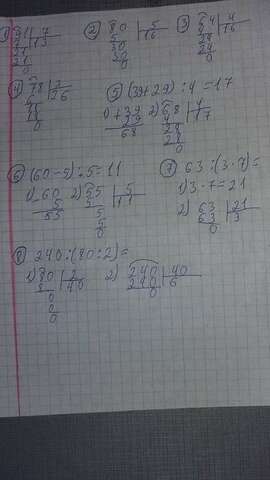 1) 91 | 7
7 | 13
21
21
0
2) 80 | 5
5 | 16
30
30
0
3) 64 | 4
4 | 16
24
24
0
4) 78 | 3
6 | 26
18
18
0
5) (39+29):4=17
1) +39
29
68
2) 68 | 4
4 | 17
28
28
0
6) (60-5):5=11
1) -60
5
55
2) 55 | 5
5 | 11
5
5
0
7) 63:(3·7)=
1) 3·7=21
2) 63 | 21
63 | 3
0
8) 240:(80:2)=
1) 80 | 2
8 | 40
0
0
2) 240 | 40
240 | 6
0